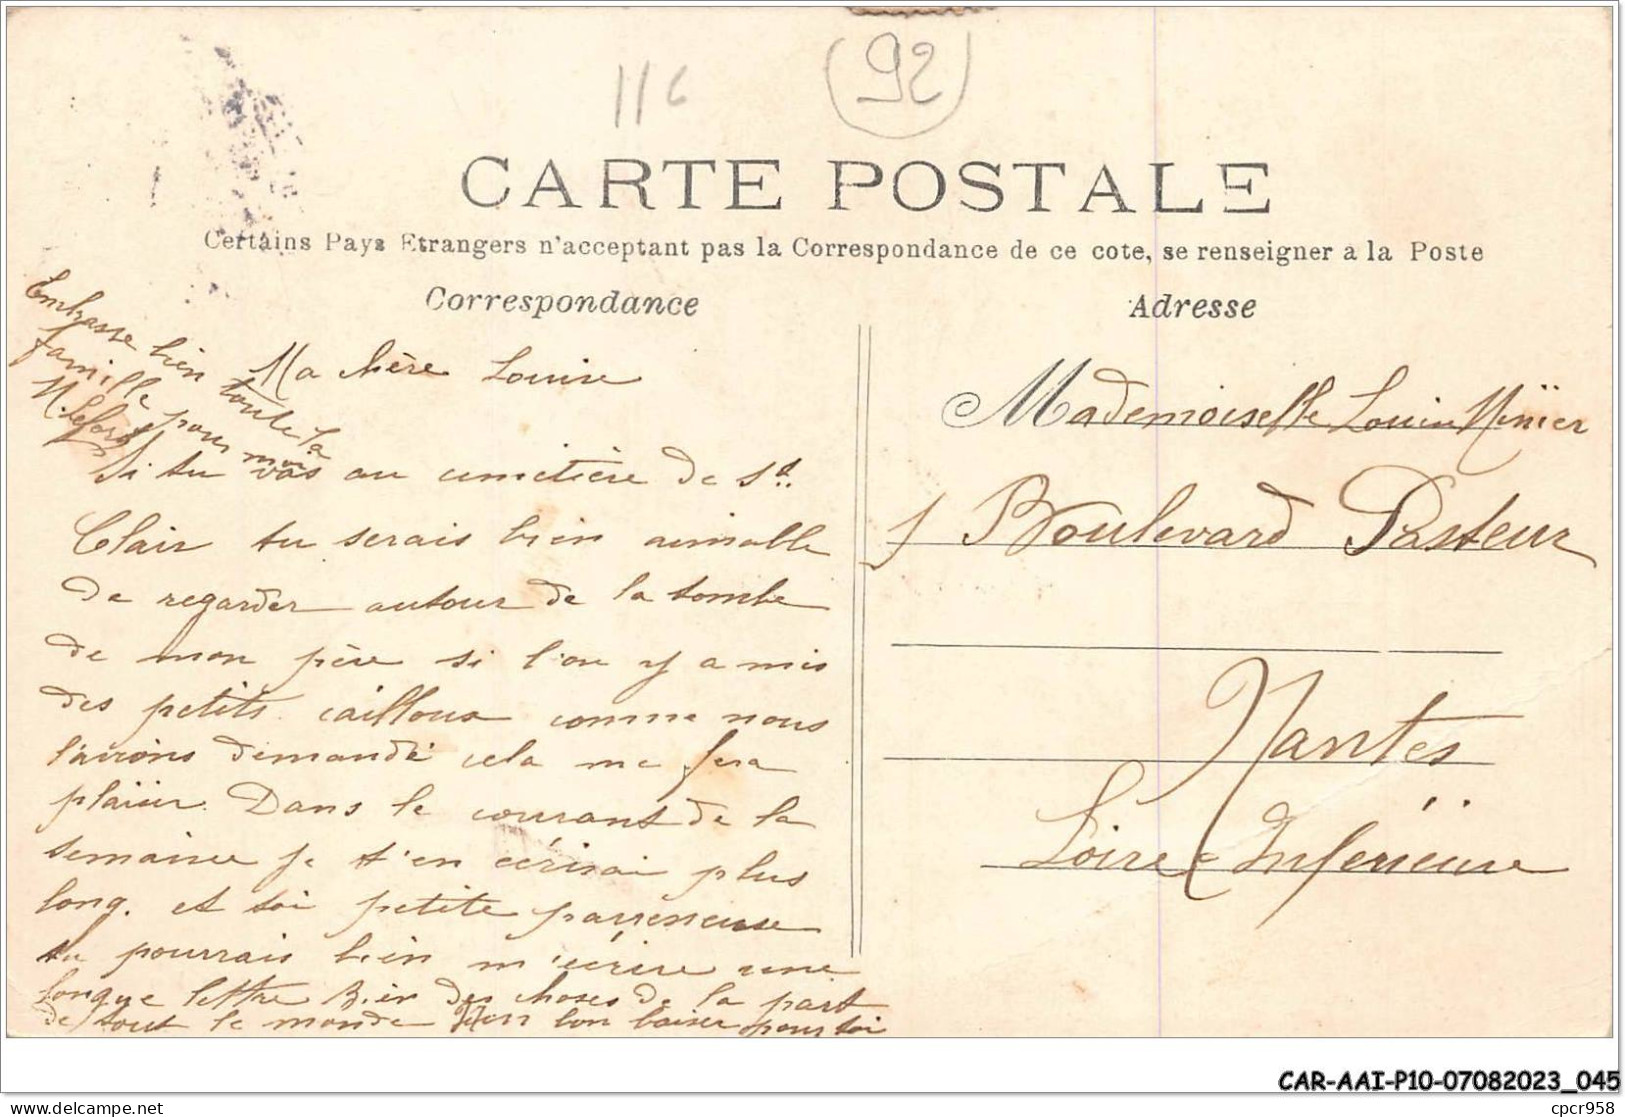 116
92
CARTE POSTALE
Certains Pays Etrangers n'acceptent pas la Correspondance de ce cote, se renseigner a la Poste
Correspondance
Embrasse bien toute la
famille pour moi
Ma chère Louise
Si tu vas au cimetière de St.
Clair tu serais bien aimable
de regarder autour de la tombe
de mon père si l'on y a mis
des petits cailloux comme nous
l'avions demandé cela me fera
plaisir. Dans le courant de la
semaine je t'en écrirai plus
long. et toi petite paresseuse
tu pourrais bien m'écrire une
longue lettre Bien des choses de la part
de tout le monde Mon bon baiser pour toi
Adresse
Mademoiselle Louise
1 Boulevard Pasteur
Nantes
Loire-Inférieure
CAR-AAI-P10-07082023_045
cpcr958